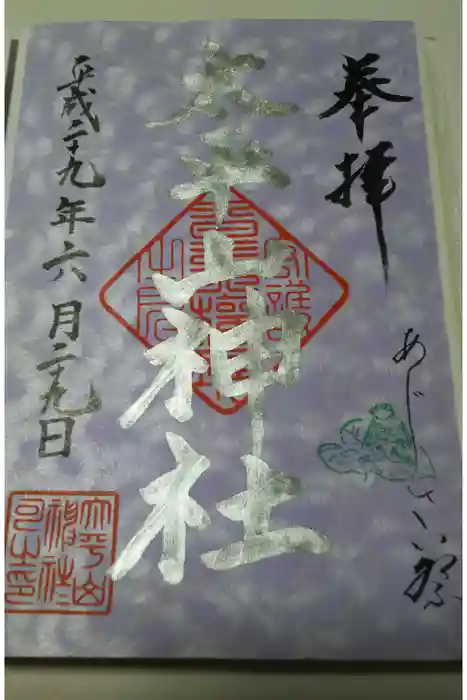 奉拝
あじさい祭
太平山神社
平成二十九年六月二十九日